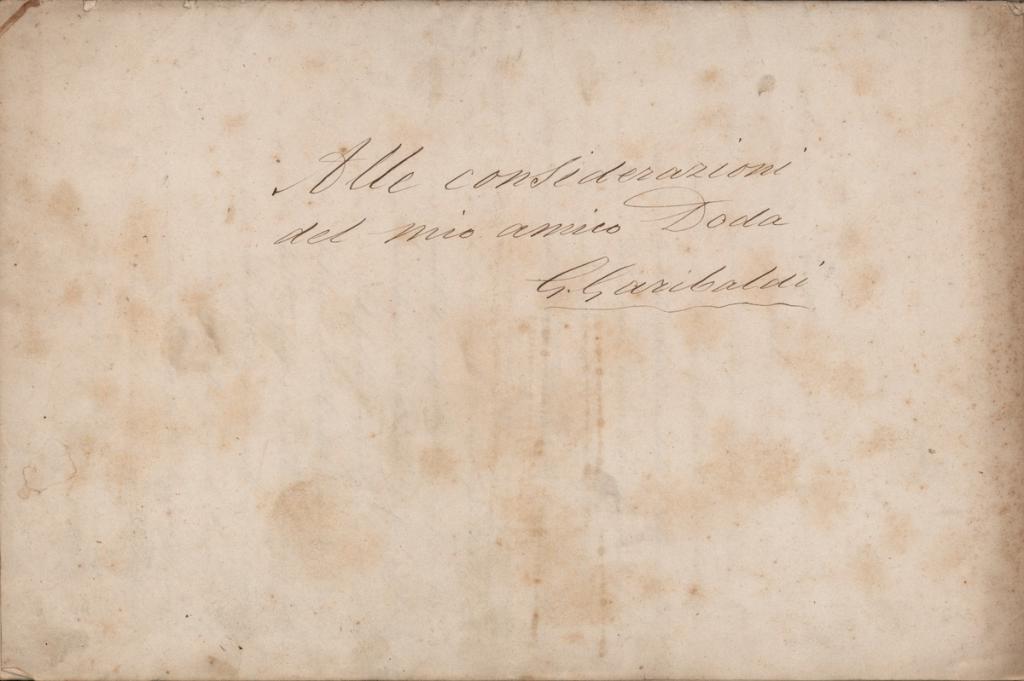 Alle considerazioni
del mio amico Doda
G. Garibaldi